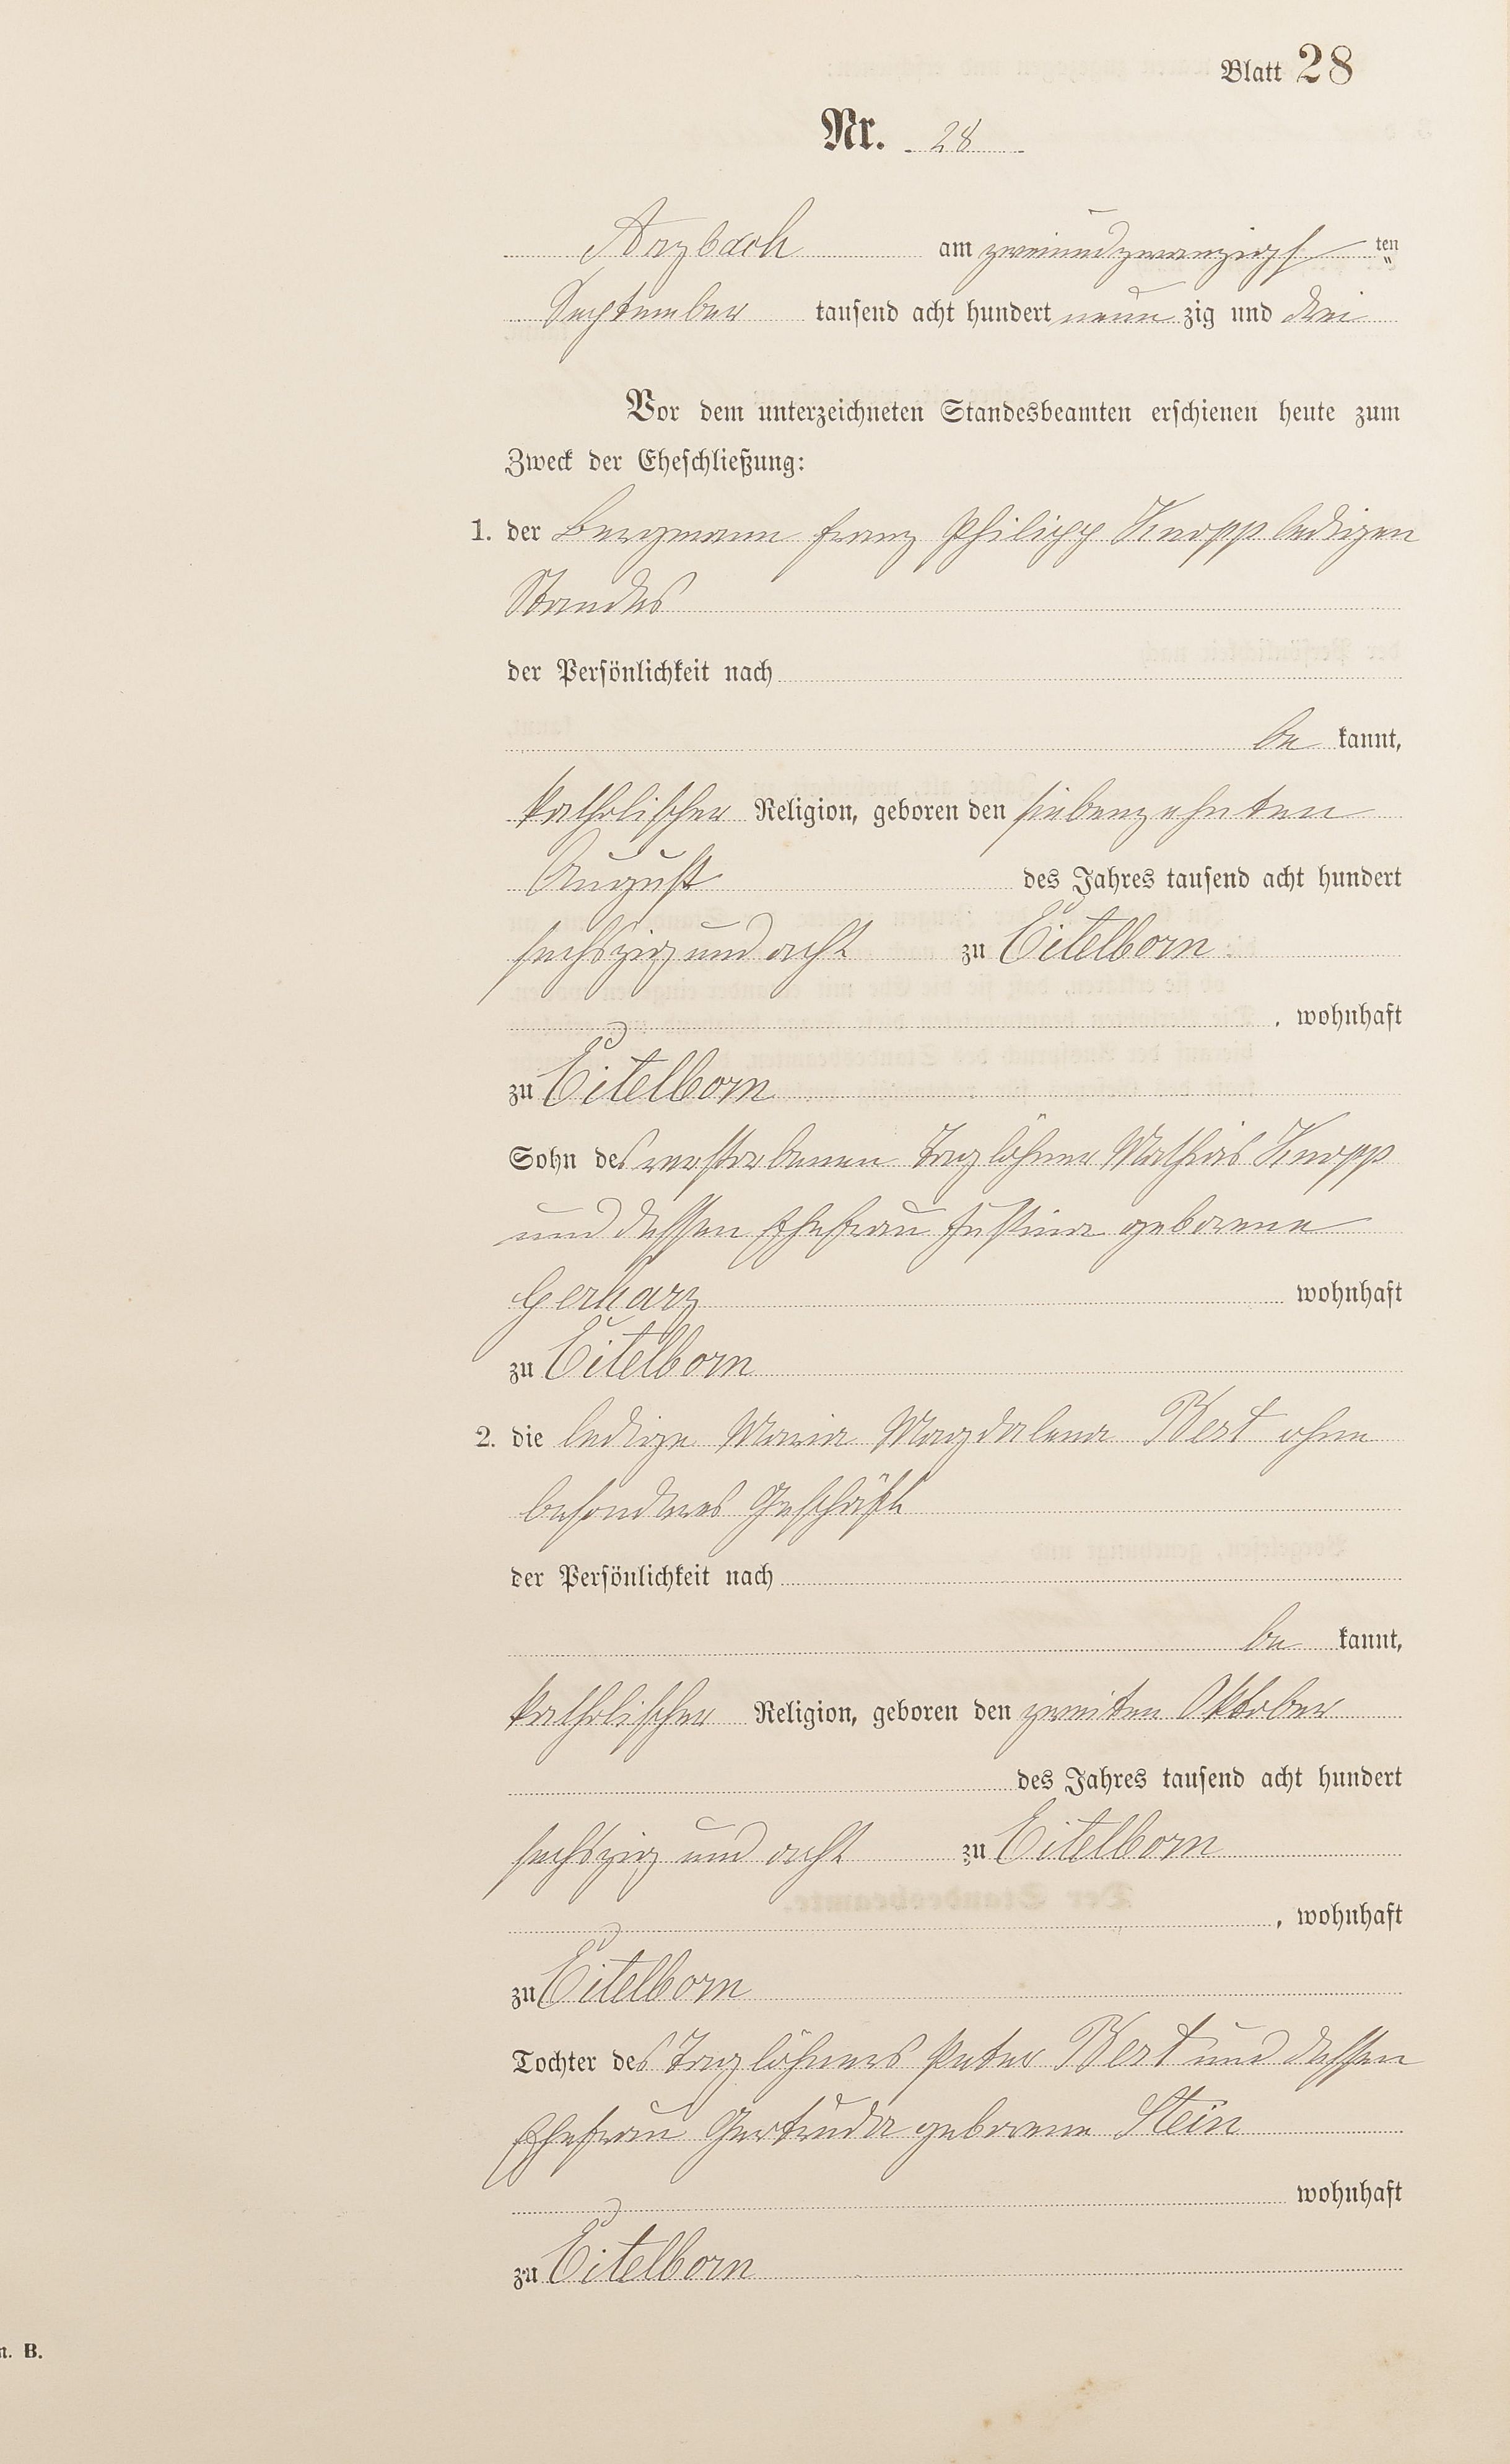 Blatt 28
Nr. 28
Arzbach am zweiundzwanzigsten
September tausend acht hundert neunzig und drei
Vor dem unterzeichneten Standesbeamten erschienen heute zum
Zweck der Eheschließung:
1. der Bergmann Franz Philipp Knopp ledigen
Standes
der Persönlichkeit nach
bekannt,
katholischer Religion, geboren den siebenzehnten
August des Jahres tausend acht hundert
sechszig und acht zu Eitelborn
, wohnhaft
zu Eitelborn
Sohn des verstorbenen Taglöhner Mathias Knopp
und dessen Ehefrau Justina geborene
Gerharz wohnhaft
zu Eitelborn
2. die ledige Maria Magdalena Best ohne
besonderes Geschäft
der Persönlichkeit nach
bekannt,
katholischer Religion, geboren den zweiten Oktober
des Jahres tausend acht hundert
sechszig und acht zu Eitelborn
, wohnhaft
zu Eitelborn
Tochter des Taglöhners Peter Best und dessen
Ehefrau Gertruda geborene Stein
wohnhaft
zu Eitelborn
n. B.